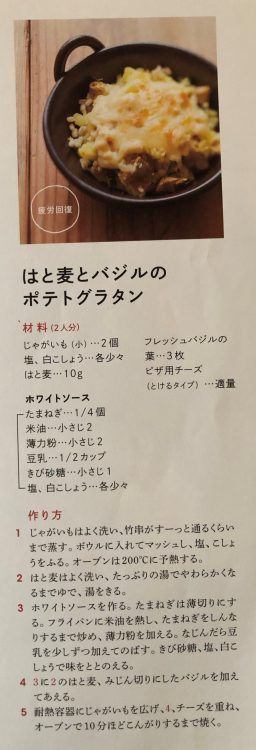 疲労回復
はと麦とバジルの
ポテトグラタン
材料(2人分)
じゃがいも(小)…2個
塩、白こしょう…各少々
はと麦…10g
フレッシュバジルの
葉…3枚
ピザ用チーズ
(とけるタイプ)…適量
ホワイトソース
たまねぎ…1/4個
米油…小さじ2
薄力粉…小さじ2
豆乳…1/2カップ
きび砂糖…小さじ1
塩、白こしょう…各少々
作り方
1 じゃがいもはよく洗い、竹串がすーっと通るくらい
まで蒸す。ボウルに入れてマッシュし、塩、こしょ
うをふる。オーブンは200℃に予熱する。
2 はと麦はよく洗い、たっぷりの湯でやわらかくな
るまでゆで、湯をきる。
3 ホワイトソースを作る。たまねぎは薄切りにす
る。フライパンに米油を熱し、たまねぎをしんな
りするまで炒め、薄力粉を加える。なじんだら豆
乳を少しずつ加えてのばす。きび砂糖、塩、白こ
しょうで味をととのえる。
4 3に2のはと麦、みじん切りにしたバジルを加え
てあえる。
5 耐熱容器にじゃがいもを広げ、4、チーズを重ね、
オーブンで10分ほどこんがりするまで焼く。